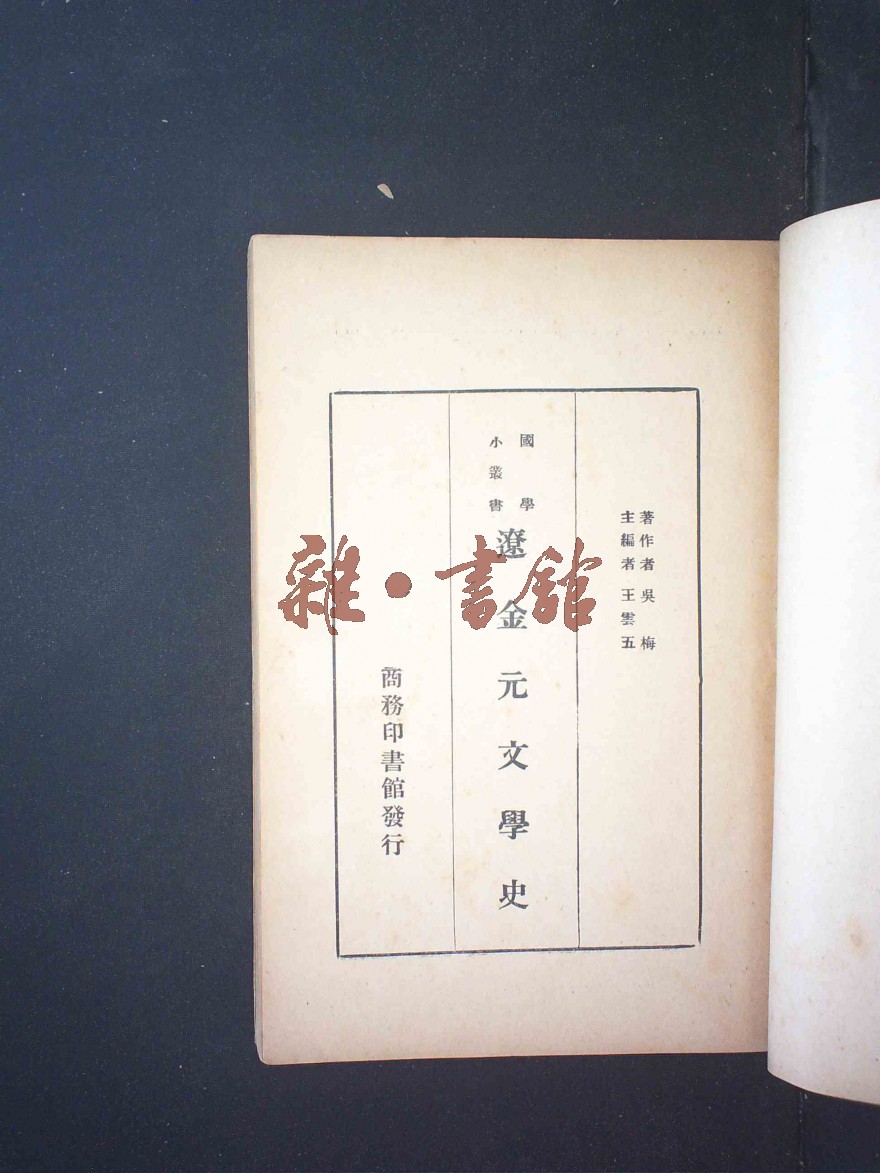 著作者吳梅
主編者王雲五
國學
小叢書
遼金元文學史
商務印書館發行
雜·書館